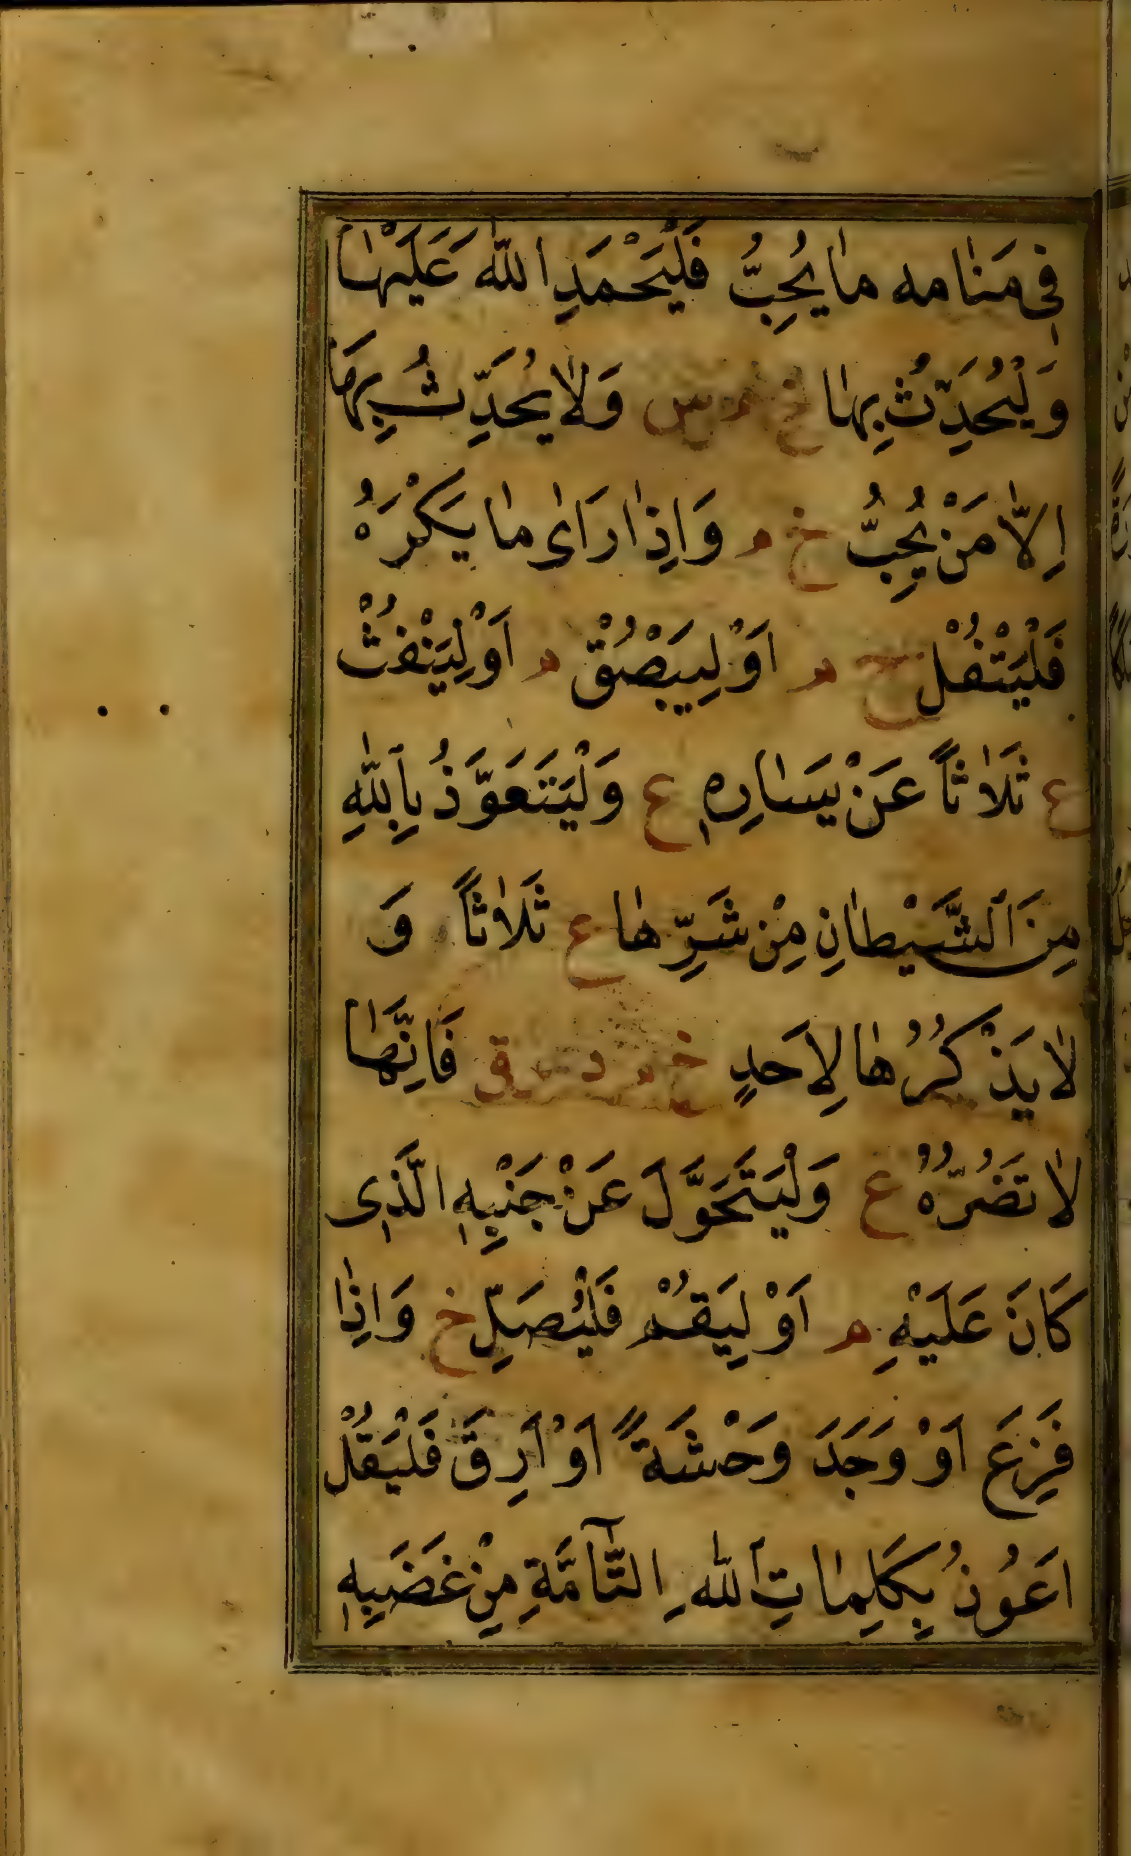 فِي مَنَامه مَا يُحِبُّ فَلْيَحْمَدِ اللّٰهَ عَلَيْهَا
وَلْيُحَدِّثْ بِهَا خ م س وَلَا يُحَدِّثُ بِهَا
اِلَّا مَنْ يُحِبُّ خ م وَاِذَا رَاٰى مَا يَكْرَهُ
فَلْيَتْفُلْ خ م اَوْ لِيَبْصُقْ م اَوْ لِيَنْفُثْ
ع ثَلَاثًا عَنْ يَسَارِهِ ع وَلْيَتَعَوَّذُ بِاللّٰهِ
مِنَ الشَّيْطَانِ مِنْ شَرِّهَا ع ثَلَاثًا وَ
لَا يَذْكُرُهَا لِاَحَدٍ خ م د ق فَاِنَّهَا
لَا تَضُرُّهُ ع وَلْيَتَحَوَّلَ عَنْ جَنْبِهِ الَّذِى
كَانَ عَلَيْهِ م اَوْ لِيَقُمْ فَلْيُصَلِّ خ وَاِذَا
فَزِعَ اَوْ وَجَدَ وَحْشَةً اَوْ اَرِقَ فَلْيَقُلْ
اَعُوذُ بِكَلِمَاتِ اللّٰهِ التَّآمَّةِ مِنْ غَضَبِهِ